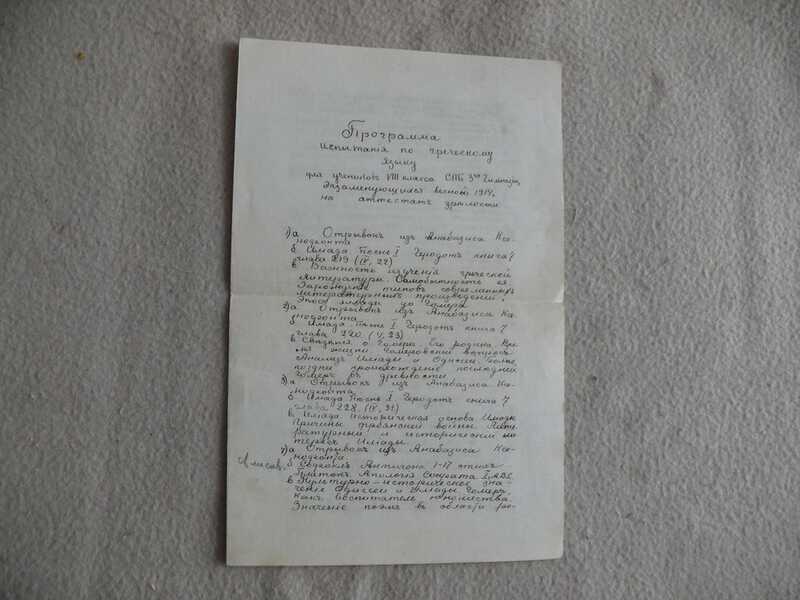 Программа
испытанія по греческому
языку
для учениковъ VIII класса СПБ 3ей Гимназіи,
Экзаменующихся весною 1914,
на аттестатъ зрѣлости.
1) а Отрывокъ изъ Анабазиса Ксе-
нофонта
б Иліада Пѣснь I Геродотъ книга 7
глава 219 (IV, 22)
в Важность изученія греческой
литературы. Самобытность ея
Зарожденіе типовъ современныхъ
литературныхъ произведеній.
Эпосъ до Гомера
2) а Отрывокъ изъ Анабазиса Ксе-
нофонта
б Иліада. Пѣснь I. Геродотъ книга 7
глава 220. (V, 23)
в Свѣдѣнія о Гомерѣ. Его родина Вре-
мя жизни. Гомеровскій вопросъ
Анализъ Иліады и Одиссеи. Болѣе
позднее происхожденіе послѣдней
Гомеръ въ древности
3) а Отрывокъ изъ Анабазиса Ксе-
нофонта
б Иліада Пѣснь I. Геродотъ книга 7
глава 228. (IV, 21)
в Иліада историческая основа Иліады
Причины троянской войны. Лите-
ратурный и историческій ин-
тересъ Иліады.
4) а Отрывокъ изъ Анабазиса Ксе-
нофонта.
б Софоклъ Антигона 1-17 стихъ
Платонъ Апологія Сократа I, АВС
в Культурно-историческое зна-
ченіе Одиссеи и Иліады Гомеръ,
какъ воспитатель юношества.
Значеніе поэмъ въ области ре-